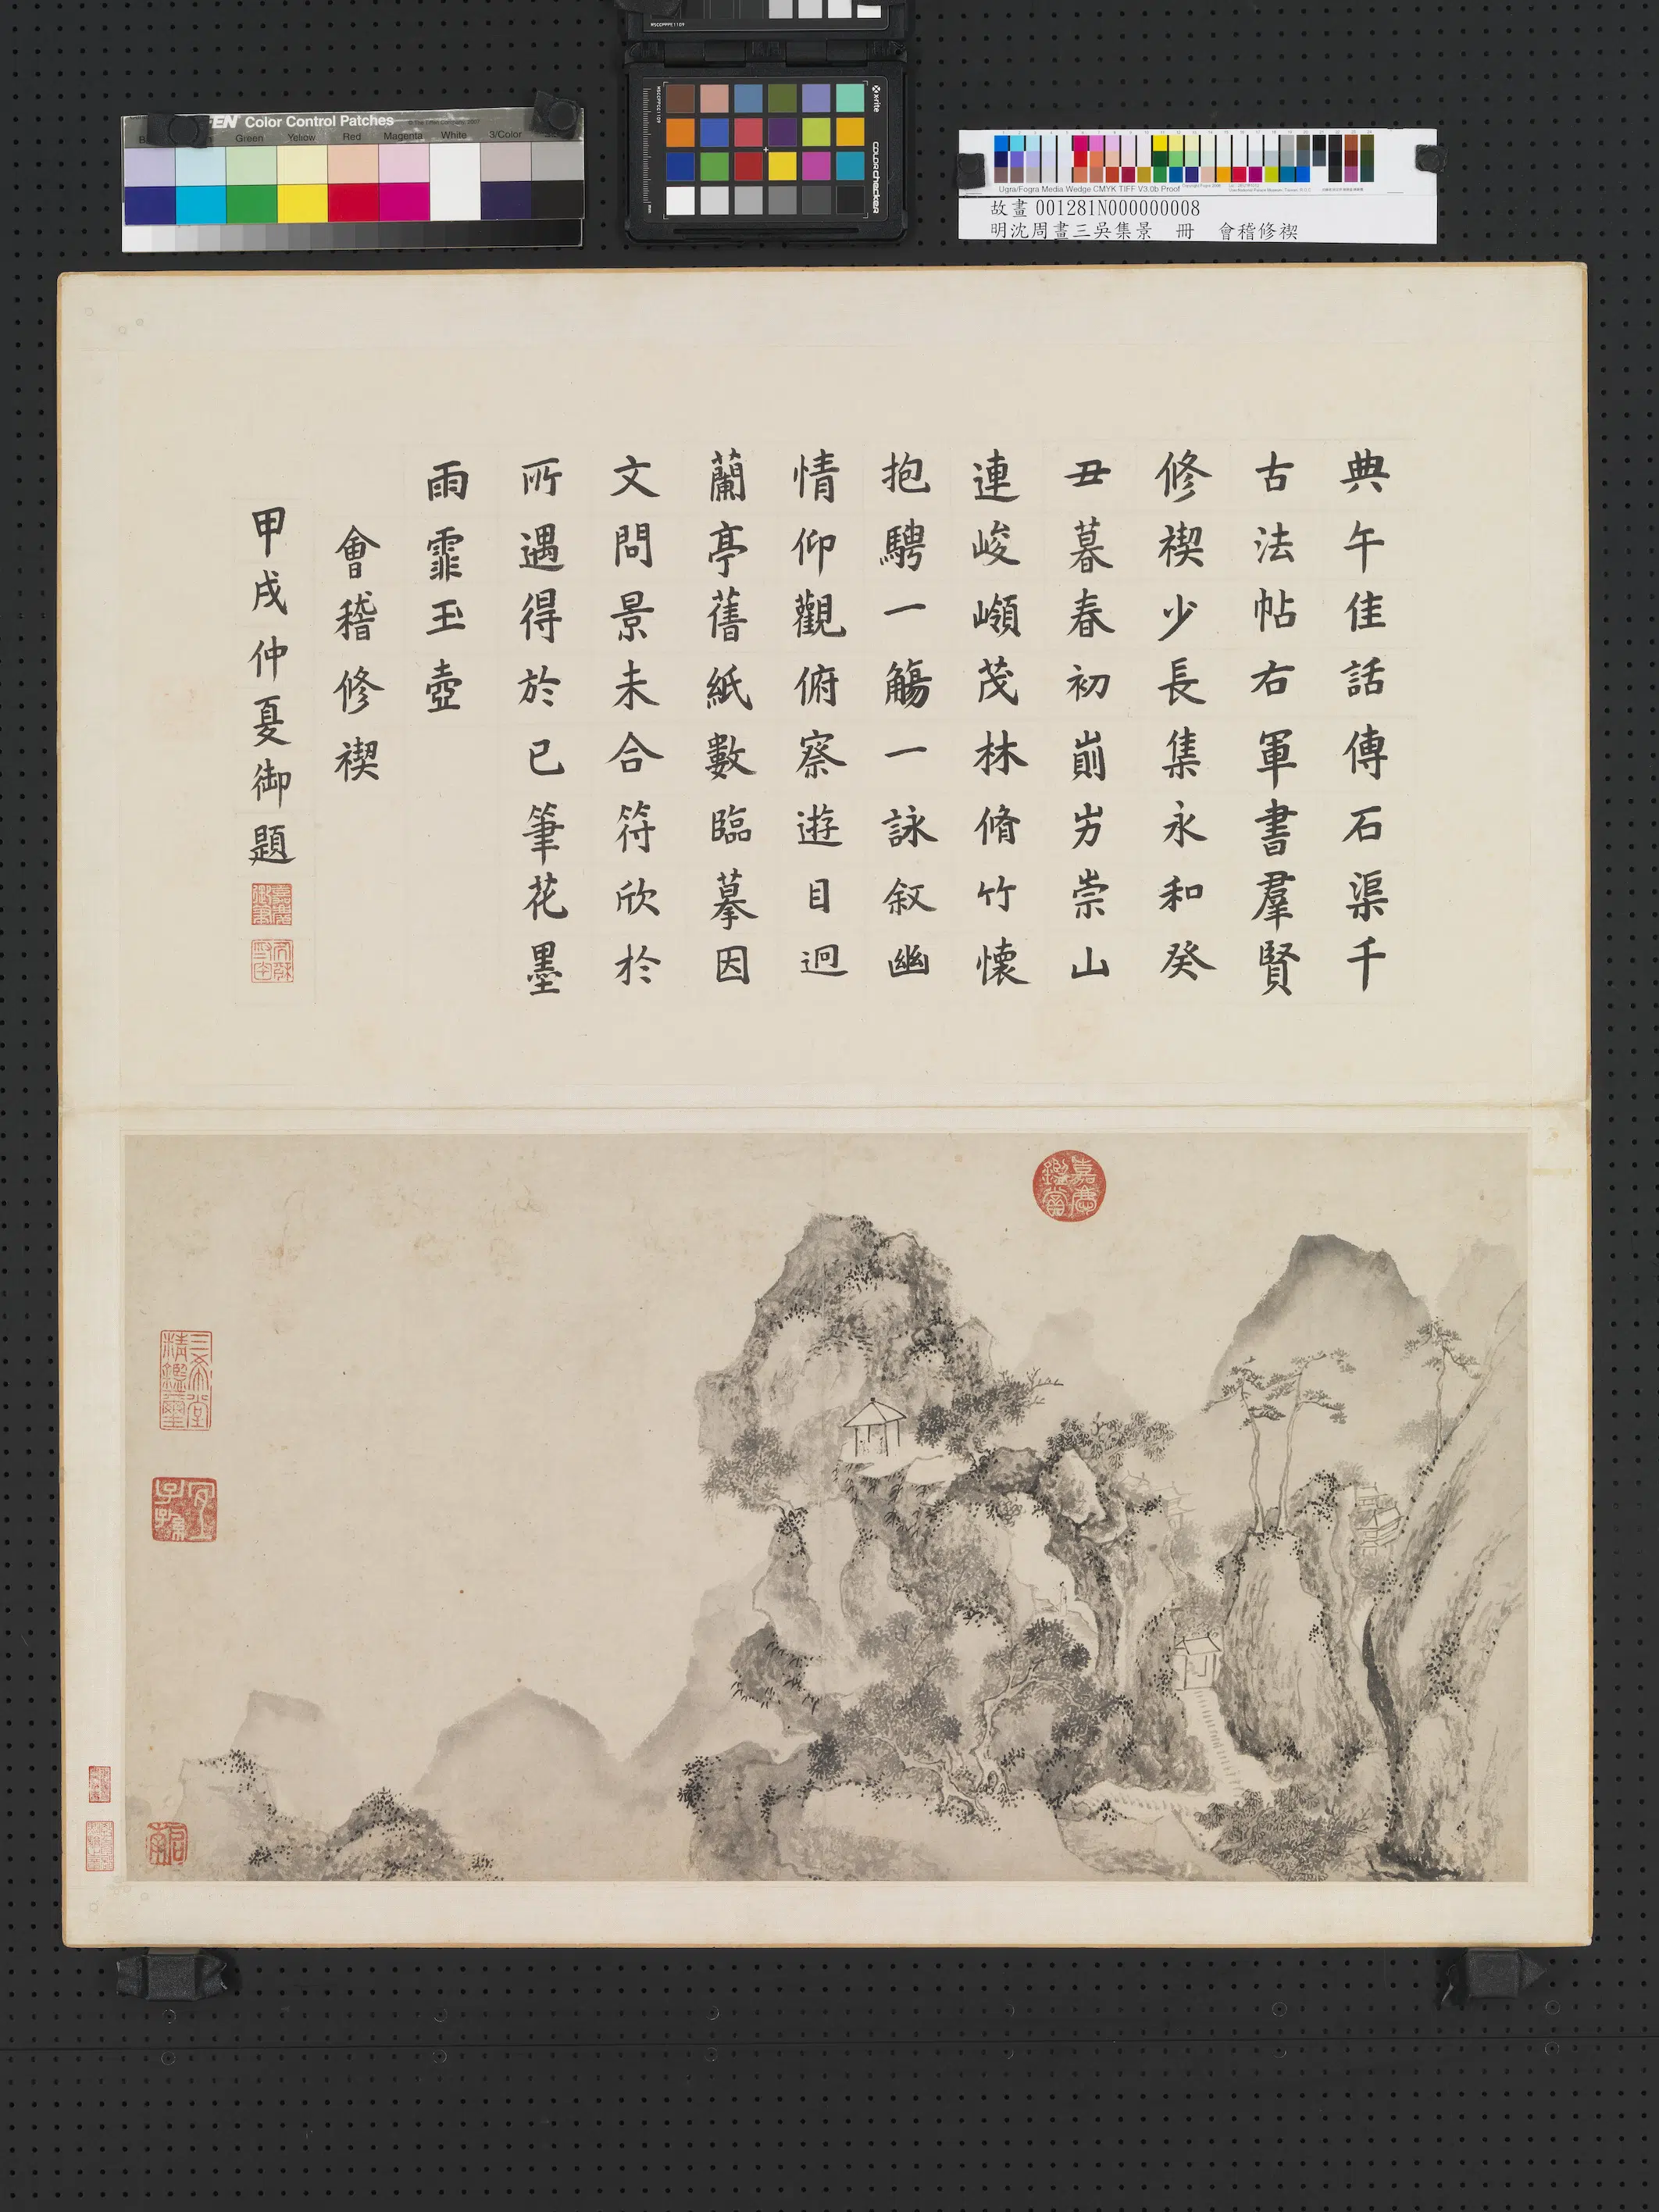 MSCCPPPE1109
Color Control Patches
Green Yellow Red Magenta White 3/Color
MSCCPPCC1109
x-rite
colorchecker
mm
Ugra/Fogra Media Wedge CMYK TIFF V3.0b Proof
故畫 001281N000000008
明沈周畫三吳集景 冊 會稽修禊
典午佳話傳石渠千
古法帖右軍書羣賢
修禊少長集永和癸
丑暮春初崱屴崇山
連峻嶺茂林脩竹懷
抱騁一觴一詠叙幽
情仰觀俯察遊目迥
蘭亭舊紙數臨摹因
文問景未合符欣於
所遇得於已筆花墨
雨霏玉壺
會稽修禊
甲戌仲夏御題
嘉慶御筆
嘉慶鑑賞
三希堂精鑑璽
宜子孫